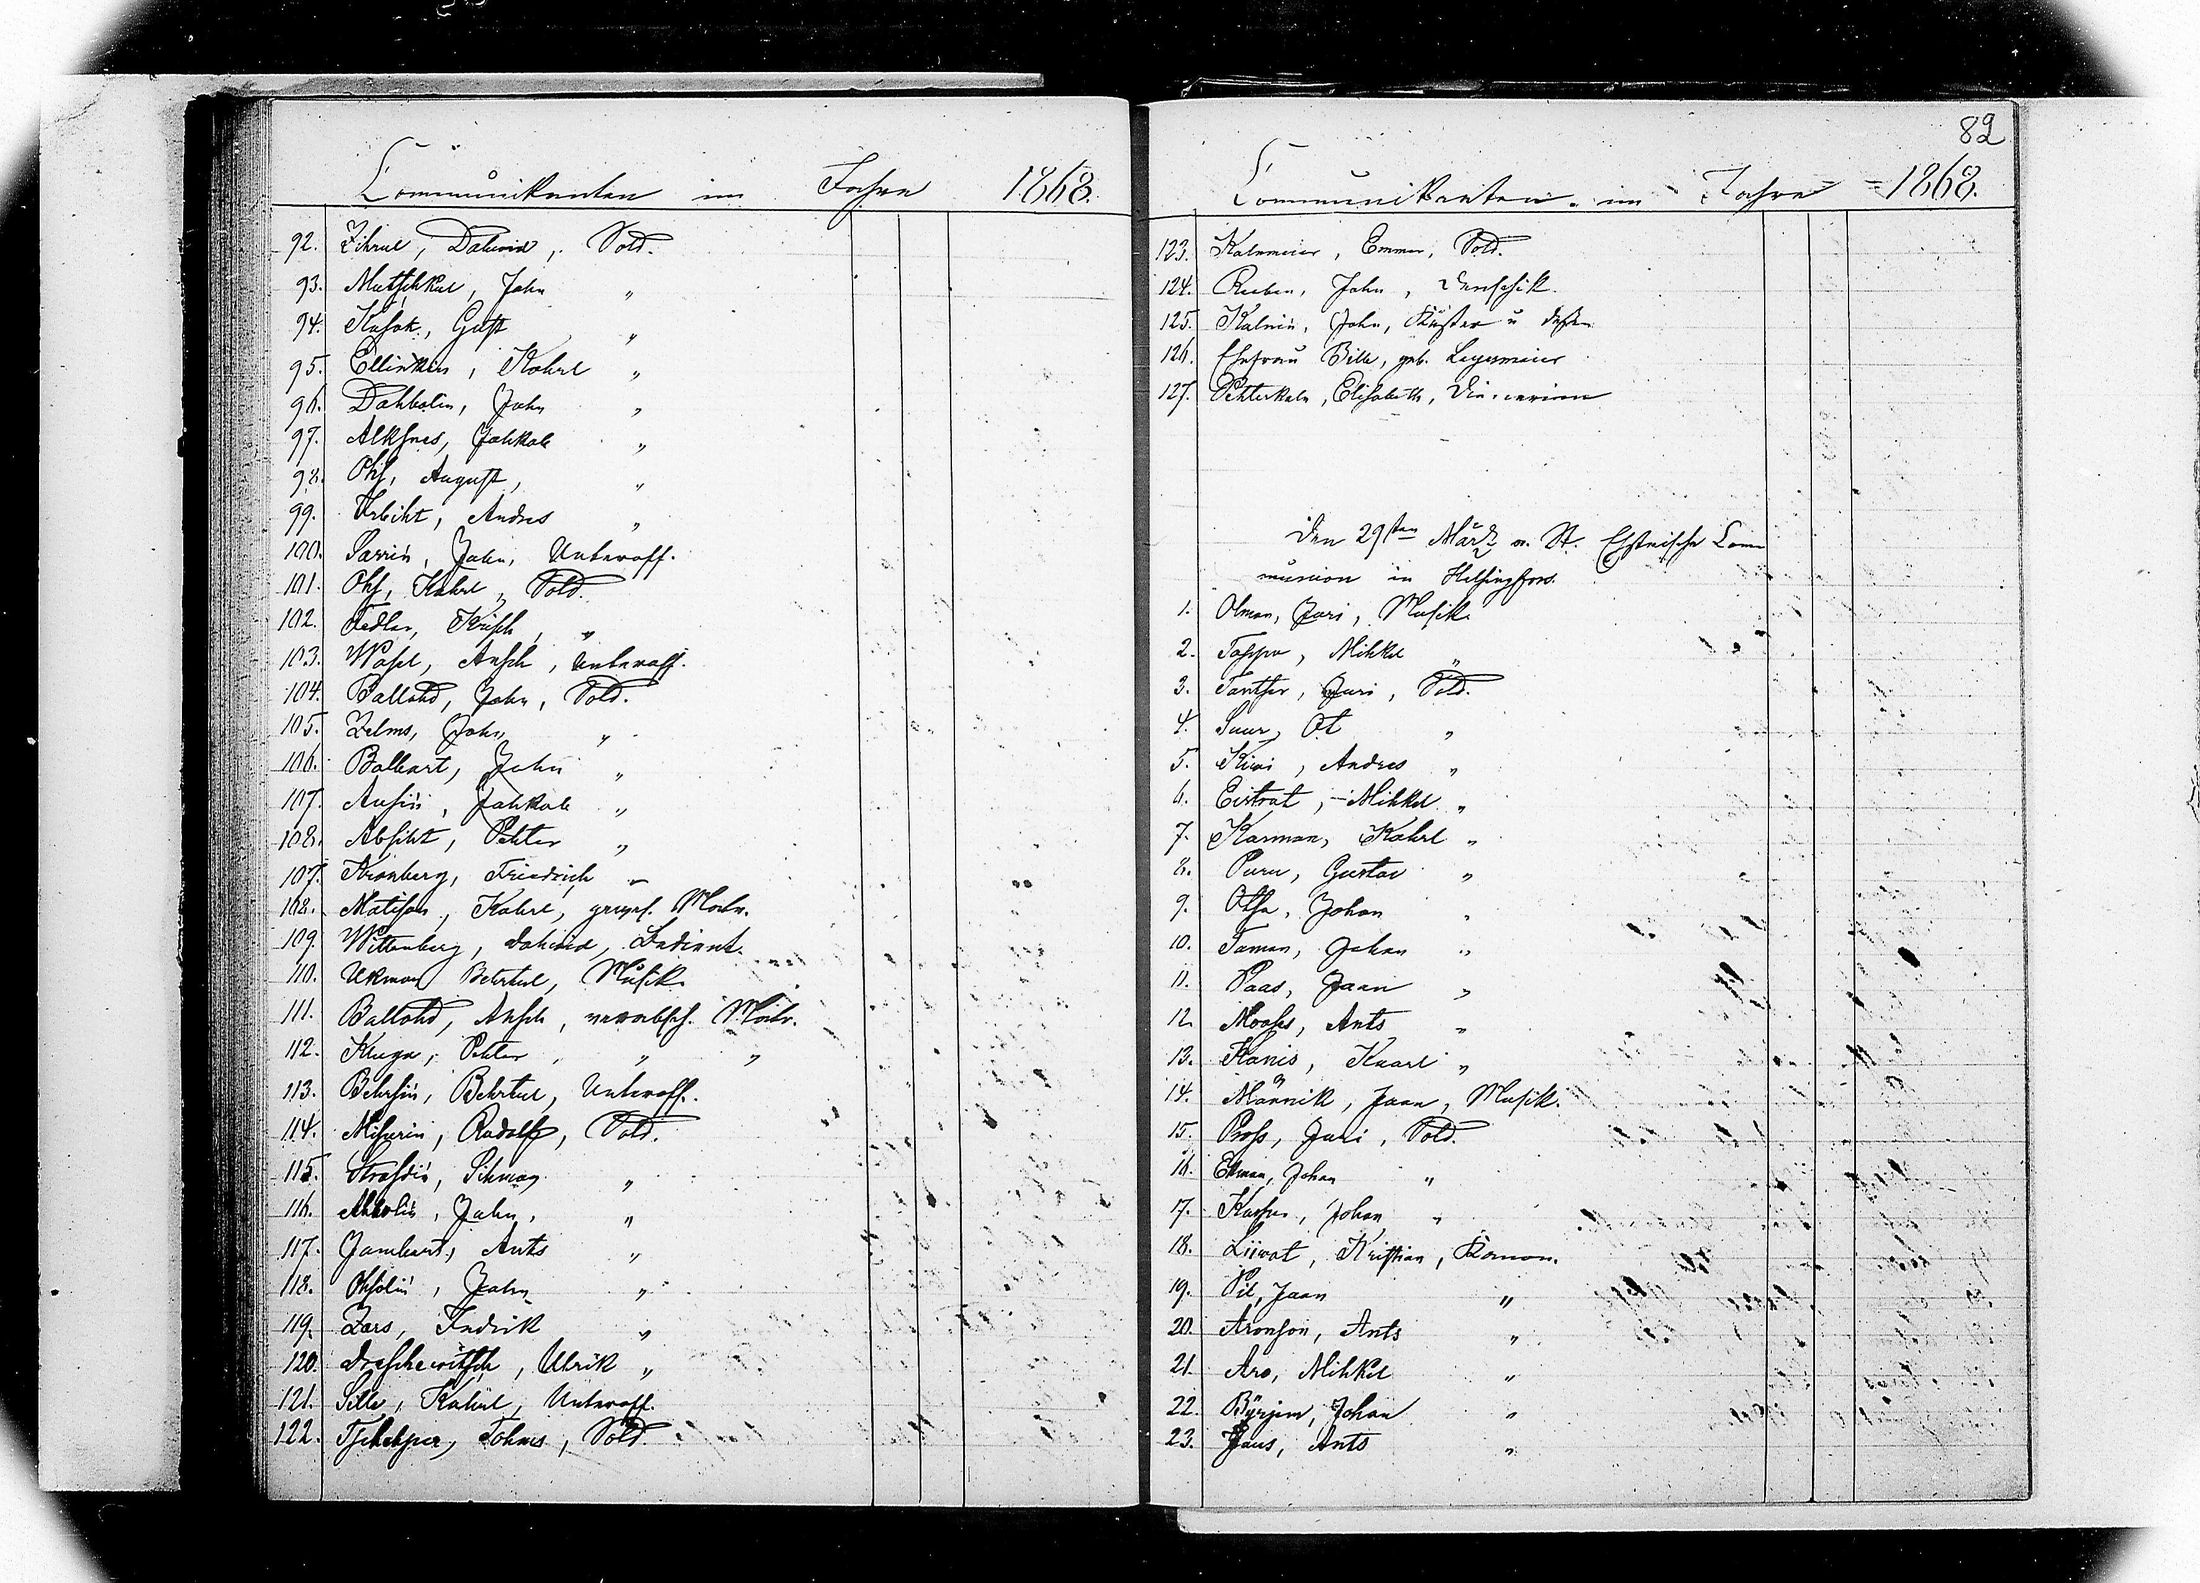 Communikanten im Jahre 1868.
92. Zihrul, Dahwid, Sold.
93. Mutschkul, Jahn "
94. Kasak, Gust "
95. Ellinkin, Kahrl "
96. Dahbolin, Jahn "
97. Alksnes, Jahkob "
98. Ohs, August, "
99. Irbiht, Andres "
100. Sarrin, Jahn, Unteroff.
101. Ohs, Kahrl, Sold.
102. Fedler, Krisch, "
103. Wasel, Ansch, Unteroff.
104. Ballohd, Jahn, Sold.
105. Zelms, Jahn "
106. Ballart, Jahn "
107. Ausin, Jahkob "
108. Absiht, Pehter "
107. Kronberg, Friedrich "
108. Matison, Kahrl,
109. Wittenberg, Dahwid,
110. Ukman Behrtul, Musik.
111. Ballohd, Ansch, verabsch.
112. Kruga, Pehter " "
113. Behrsin, Behrtul, Unteroff.
114. Misurin, Rudolf, Sold.
115. Strasdin, Sihman "
116. Ahbolin, Jahn, "
117. Jambart, Ants "
118. Ohsolin, Jahn "
119. Zars, Indrik "
120. Draschewitsch, Ulrik "
121. Sille, Kahrl, Unteroff.
122. Tschetsper, Tohms, Sold.
82
Communikanten im Jahre 1868.
123. Kalnmeier, Emmer, Sold.
124. Reeben, Jahn, Denschik.
125. Kalnin, Jahn, Küster u dessen
126. Ehefrau Bille, geb. Legsmeier
127. Pehterkaln, Elisabeth, Dienerinn
Den 29sten März a. St. Ehstnische Com
munion in Helsingfors.
1. Olman, Juri, Musik.
2. Toppo, Mihkel "
3. Tantser, Juri, Sold.
4. Suur, Ot "
5. Kiwi, Andres "
6. Eistrat, Mihkel "
7. Karman, Kahrl "
8. Puru, Gustav "
9. Otsa, Johan "
10. Taman, Johan "
11. Paas, Jaan "
12. Mooses, Ants "
13. Kanis, Kaarl "
14. Männik, Jaan, Musik.
15. Pross, Juri, Sold.
16. Etman, Johan "
17. Kasper, Johan "
18. Liiwat, Kristian, Kanon.
19. Pil, Jaan "
20. Aronson, Ants "
21. Aro, Mihkel "
22. Bürjem, Johan "
23. Jaus, Ants "